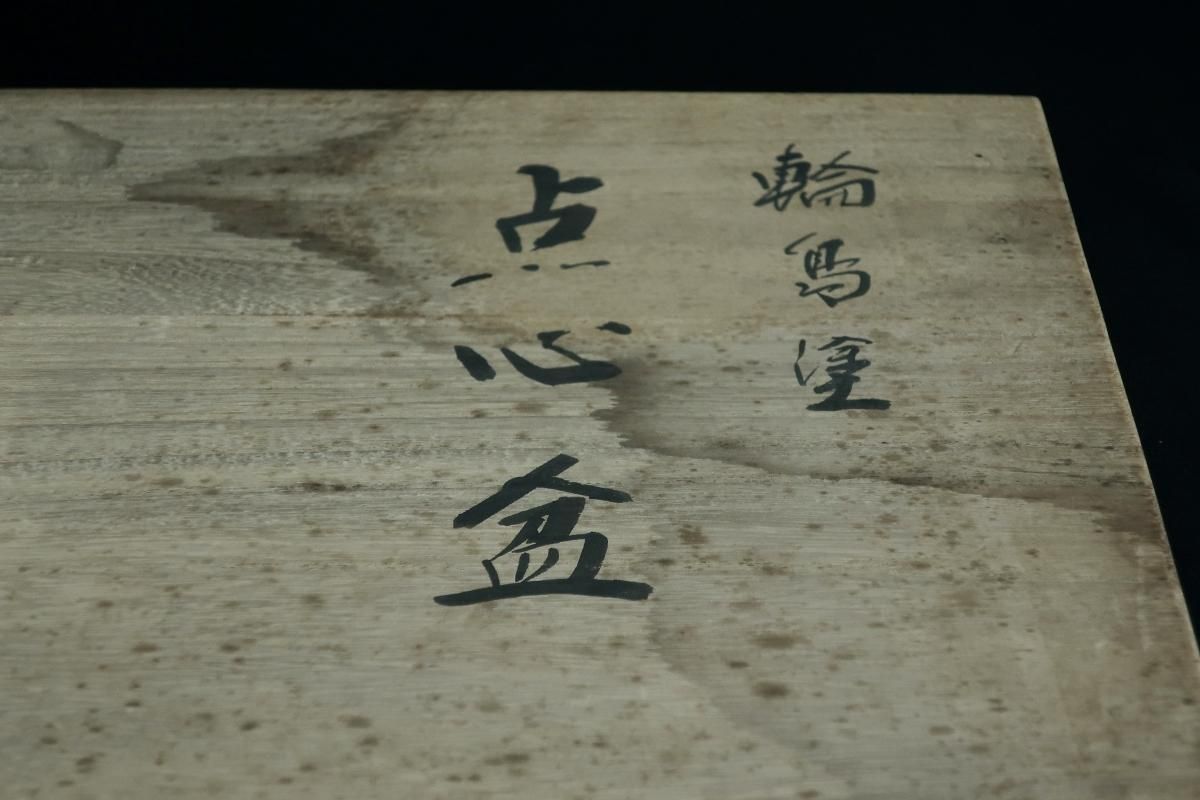 輪島塗
点心盆